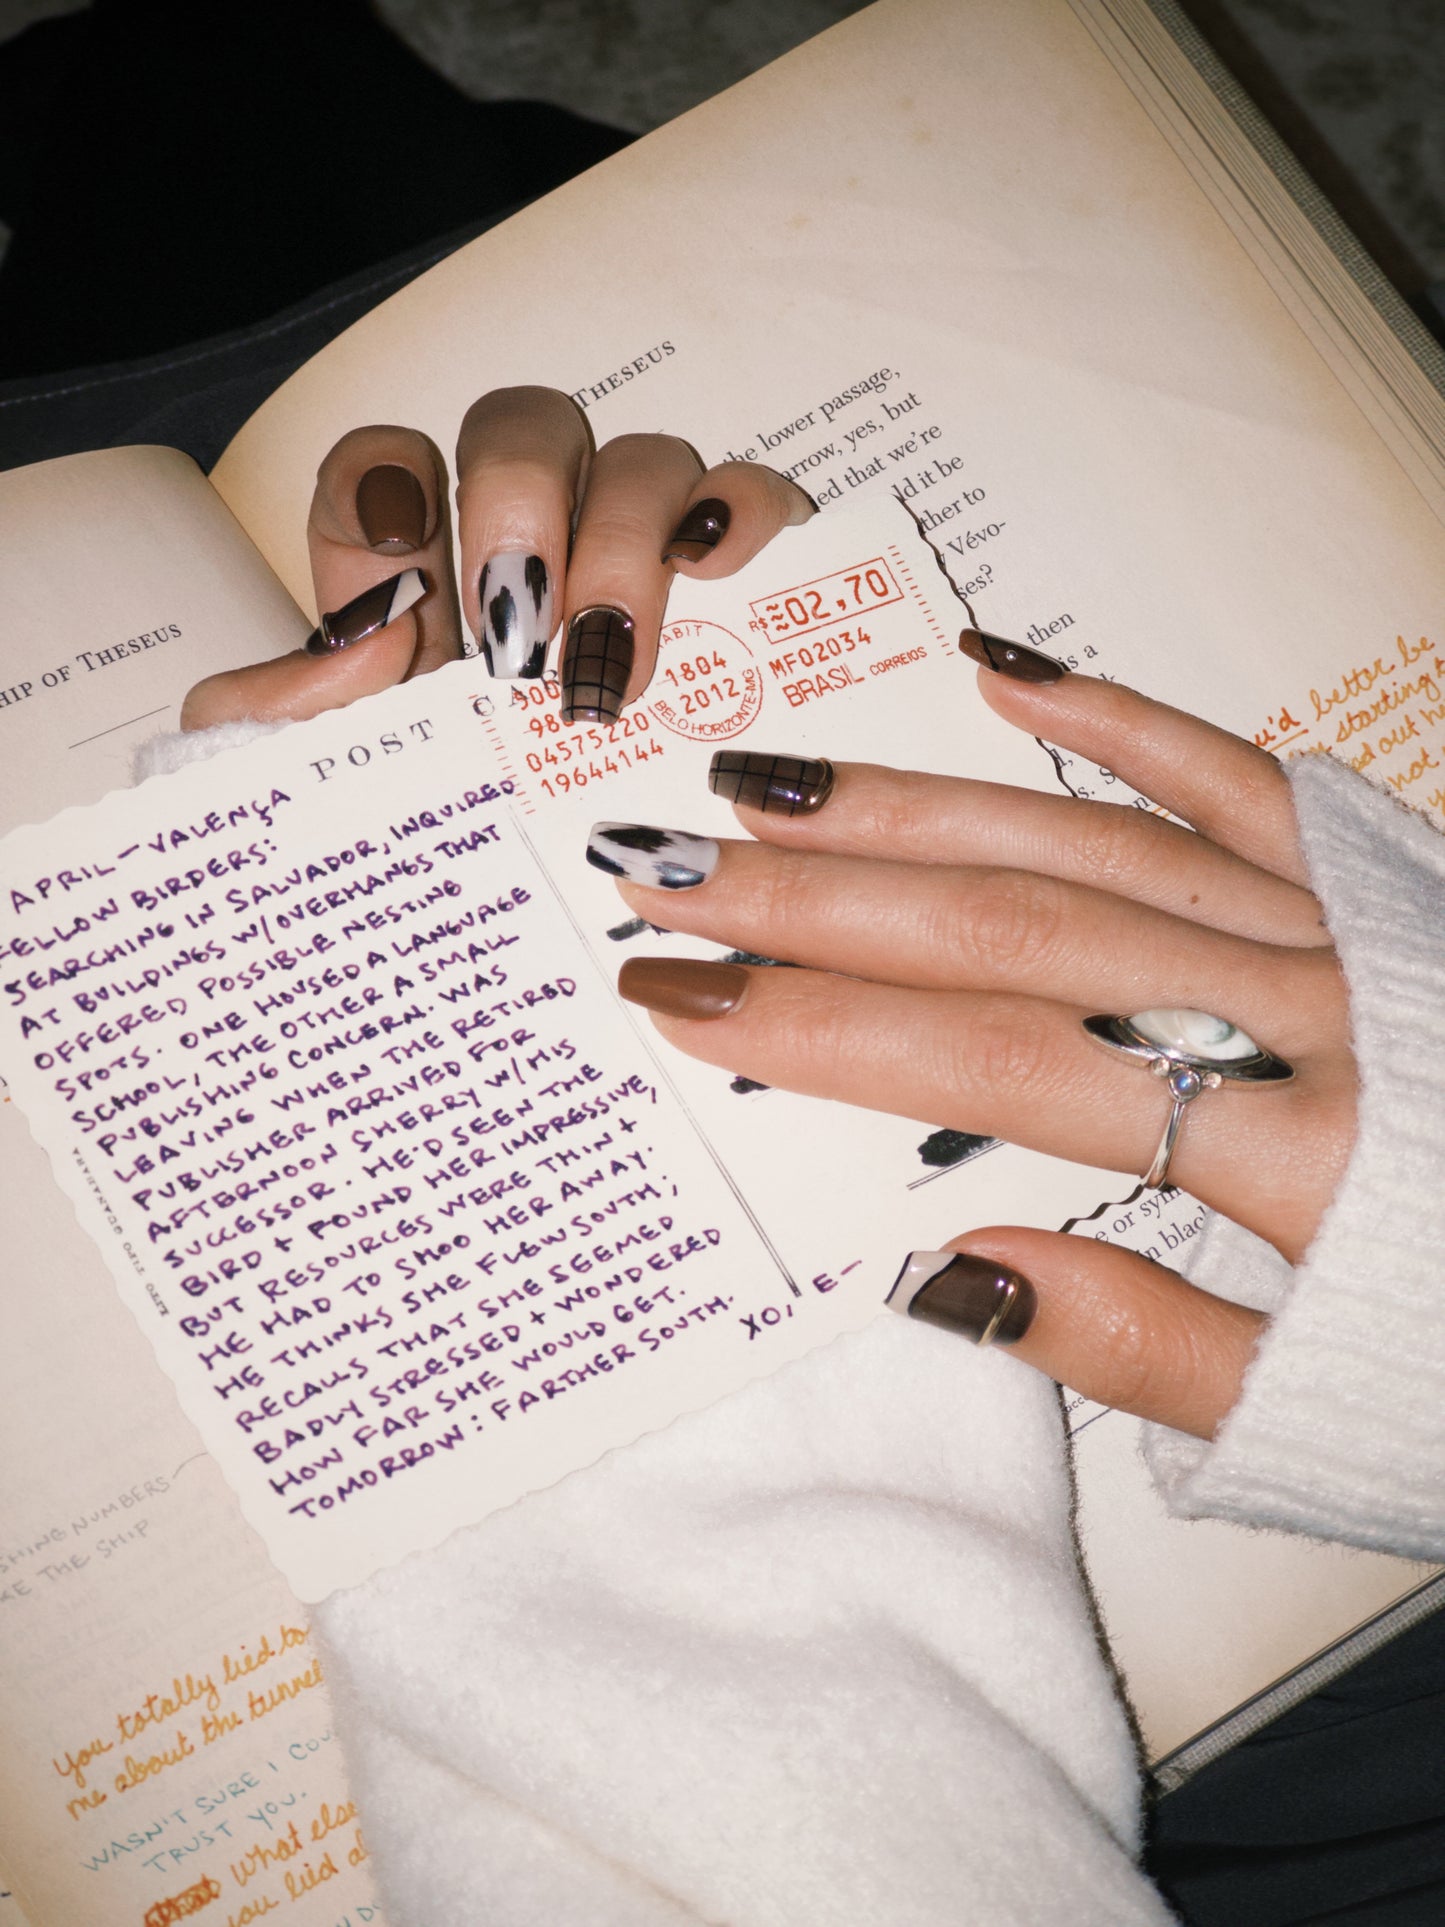 THESEUS
the lower passage,
arrow, yes, but
ed that we're
ld it be
ther to
Vévo-
ses?
then
is a
SHIP OF THESEUS
POST CAR
1804
2012
BELO HORIZONTE-MG
R$ 02,70
MF02034
BRASIL CORREIOS
04575220
19644144
APRIL—VALENÇA
FELLOW BIRDERS:
SEARCHING IN SALVADOR, INQUIRED
AT BUILDINGS W/OVERHANGS THAT
OFFERED POSSIBLE NESTING
SPOTS. ONE HOUSED A LANGUAGE
SCHOOL, THE OTHER A SMALL
PUBLISHING CONCERN. WAS
LEAVING WHEN THE RETIRED
PUBLISHER ARRIVED FOR
AFTERNOON SHERRY W/HIS
SUCCESSOR. HE'D SEEN THE
BIRD + FOUND HER IMPRESSIVE,
BUT RESOURCES WERE THIN +
HE HAD TO SHOO HER AWAY.
HE THINKS SHE FLEW SOUTH;
RECALLS THAT SHE SEEMED
BADLY STRESSED + WONDERED
HOW FAR SHE WOULD GET.
TOMORROW: FARTHER SOUTH.
XO, E—
LITO TIPO GUANABARA
better be
starting
not
e or sym
in black
NUMBERS
THE SHIP
You totally lied to
me about the tunnel
WASN'T SURE I COU
TRUST YOU.
What else
you lied a